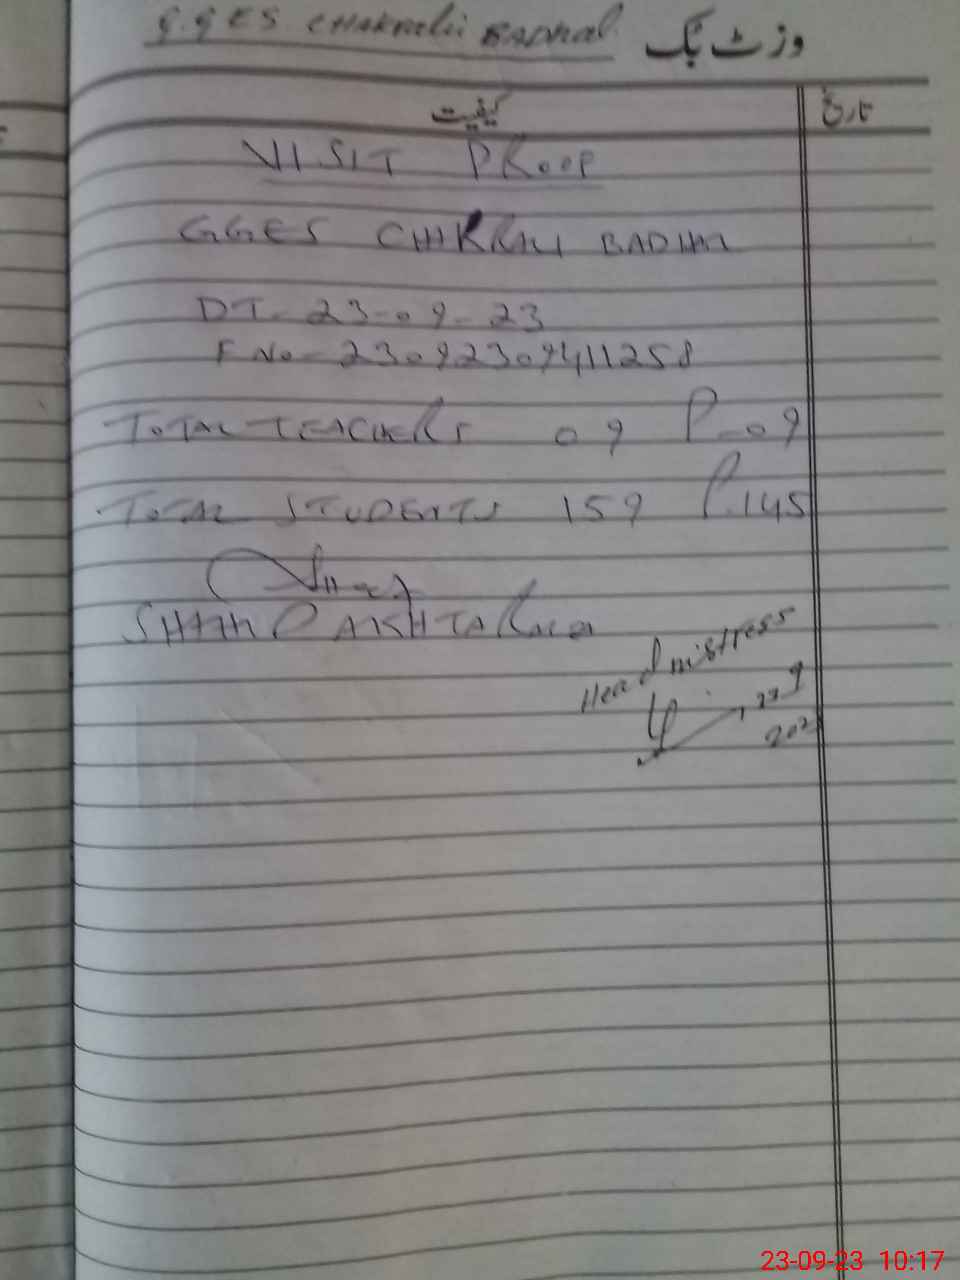 G.GES CHAKRALI BADHAL وزٹ بک
کیفیت تاریخ
VISIT PROOF
GGES CHKRALI BADHAL
DT- 23-09-23
F No- 23092309411258
TOTAL TEACHERS 09 P-09
TOTAL STUDENTS 159 P.145
Headmistress
23-09-23 10:17